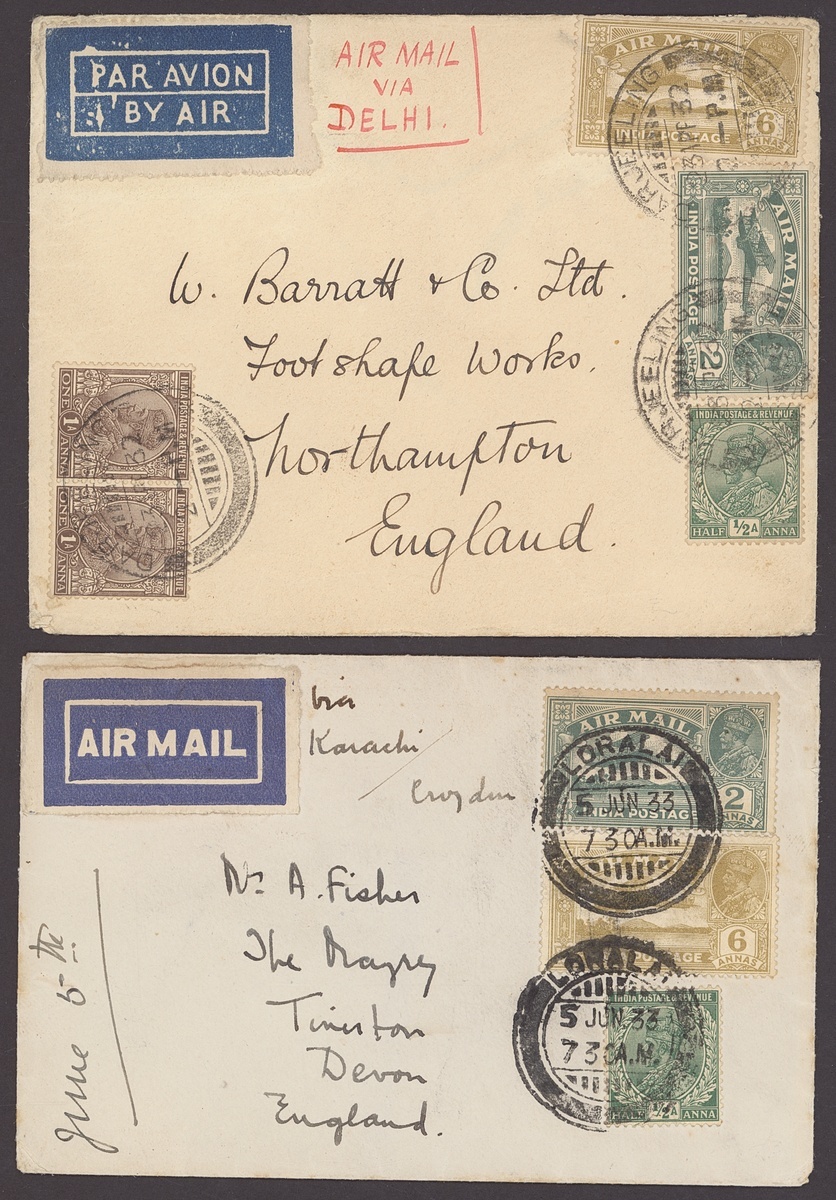 PAR AVION
BY AIR
AIR MAIL
VIA
DELHI.
AIR MAIL
INDIA POSTAGE
6
ANNAS
DARJEELING
32
P.M
AIR MAIL
INDIA POSTAGE
2
ANNAS
DARJEELING
INDIA POSTAGE & REVENUE
HALF ½A ANNA
W. Barratt & Co. Ltd.
Footshape Works.
Northampton
England.
INDIA POSTAGE & REVENUE
ONE 1A ANNA
INDIA POSTAGE & REVENUE
ONE 1A ANNA
32
AIR MAIL
via
Karachi /
Croydon
AIR MAIL
INDIA POSTAGE
2
ANNAS
LORALAI
5 JUN 33
7 30 A.M.
POSTAGE
6
ANNAS
LORALAI
5 JUN 33
7 30 A.M.
INDIA POSTAGE & REVENUE
HALF ½A ANNA
A. Fisher
The
Devon
England.
June 5th